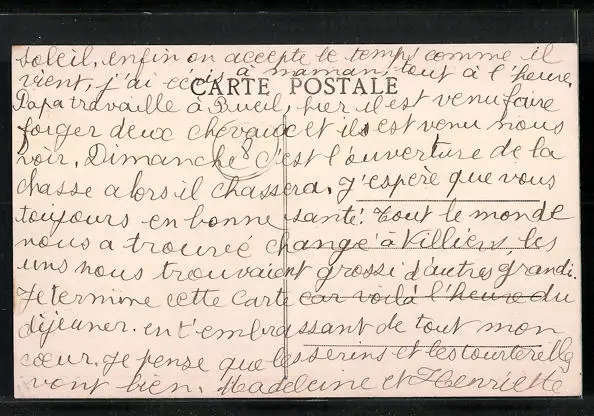 soleil, enfin on accepte le temps comme il
vient, j'ai écris à maman, tout à l'heure,
CARTE POSTALE
Papa travaille à Rueil, hier il est venu faire
forger deux chevaux et il est venu nous
voir. Dimanche c'est l'ouverture de la
chasse alors il chassera. J'espère que vous
toujours en bonne santé! Tout le monde
nous a trouvé changé à Villiers, les
uns nous trouvaient grossi d'autres grandi.
Je termine cette carte car voilà l'heure du
déjeuner. en t'embrassant de tout mon
cœur. Je pense que les serins et les tourterelles
vont bien. Madeleine et Henriette